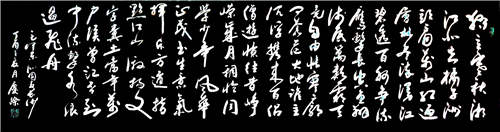 独立寒秋湘
江北去橘子洲
头看万山红遍
层林尽染漫江
碧透百舸争流
鹰击长空鱼翔
浅底万类霜天
竞自由怅寥廓
问苍茫大地谁主
沉浮携来百侣
曾游忆往昔峥
嵘岁月稠恰同
学少年风华
正茂书生意气
挥斥方遒指
点江山激扬文
字粪土当年万
户侯曾记否到
中流击水浪
遏飞舟